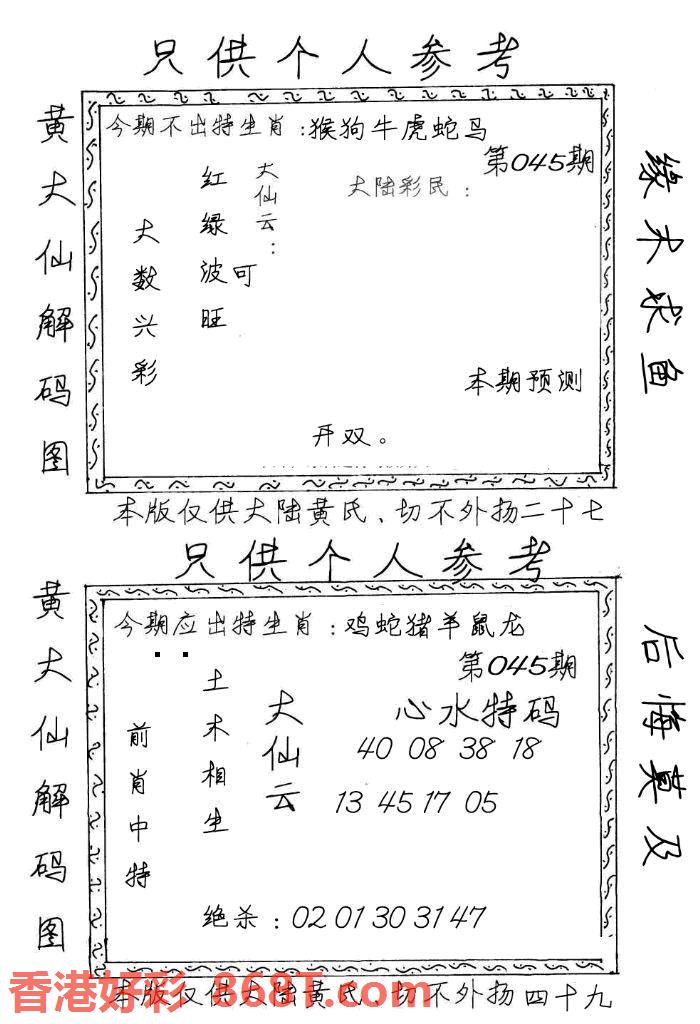 只供个人参考
黄大仙解码图
今期不出特生肖：猴狗牛虎蛇马
第045期
大陆彩民：
大仙云：
红绿波旺
可
大数兴彩
本期预测
开双。
缘木求鱼
本版仅供大陆黄氏、切不外扬二十七
只供个人参考
黄大仙解码图
今期应出特生肖：鸡蛇猪羊鼠龙
第045期
心水特码
大仙云
40 08 38 18
13 45 17 05
土木相生
前肖中特
绝杀：02 01 30 31 47
后悔莫及
香港好彩 868T.com
本版仅供大陆黄氏、切不外扬四十九